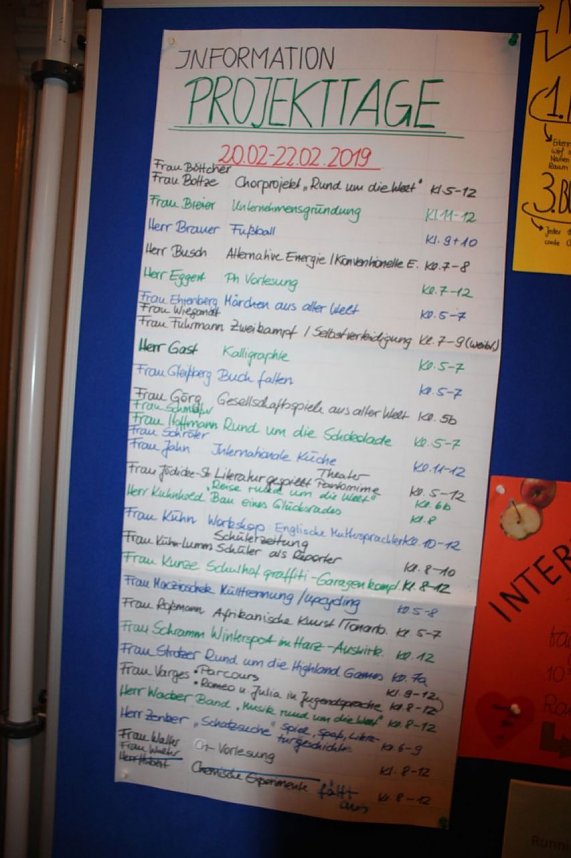 INFORMATION
PROJEKTTAGE
20.02-22.02.2019
Frau Böttcher
Frau Boltze Chorprojekt "Rund um die Welt" Kl. 5-12
Frau Breier Unternehmensgründung Kl. 11-12
Herr Brauer Fußball Kl. 9+10
Herr Busch Alternative Energie / Konventionelle E. Kl. 7-8
Herr Eggert Ph Vorlesung Kl. 7-12
Frau Ehrenberg Märchen aus aller Welt Kl. 5-7
Frau Wiegandt
Frau Fuhrmann Zweikampf / Selbstverteidigung Kl. 7-9 (weibl.)
Herr Gast Kalligraphie Kl. 5-7
Frau Gleißberg Buch falten Kl. 5-7
Frau Görg Gesellschaftsspiele aus aller Welt Kl. 5b
Frau
Frau Hoffmann Rund um die Schokolade Kl. 5-7
Frau Schröter
Frau Jahn Internationale Küche Kl. 11-12
Theater
Frau Literatur gespielt Pantomime Kl. 5-12
"Reise rund um die Welt" Kl. 6b
Herr Bau eines Glücksrades Kl. 8
Frau Kühn Workshop Englische Muttersprachler Kl. 10-12
Schülerzeitung
Frau Kühn-Lumm Schüler als Reporter Kl. 8-10
Frau Kunze Schulhof graffiti-Garagenkompl. Kl. 8-12
Frau Mülltrennung / upcycling Kl. 5-8
Frau Roßmann Afrikanische Kunst / Tonarb. Kl. 5-7
Frau Schramm Wintersport im Harz - Auswirk. Kl. 12
Frau Rund um die Highland Games Kl. 7a
Frau Varges • Parcours Kl. 9-12
• Romeo u. Julia in Jugendsprache Kl. 8-12
Herr Band "Musik rund um die Welt" Kl. 8-12
Herr "Schatzsuche" Spiel, Spaß, Kl. 6-9
Frau Walter
Ch-Vorlesung Kl. 8-12
Frau
Herr Chemische Experimente fällt aus Kl. 8-12
1.
3.
INTER